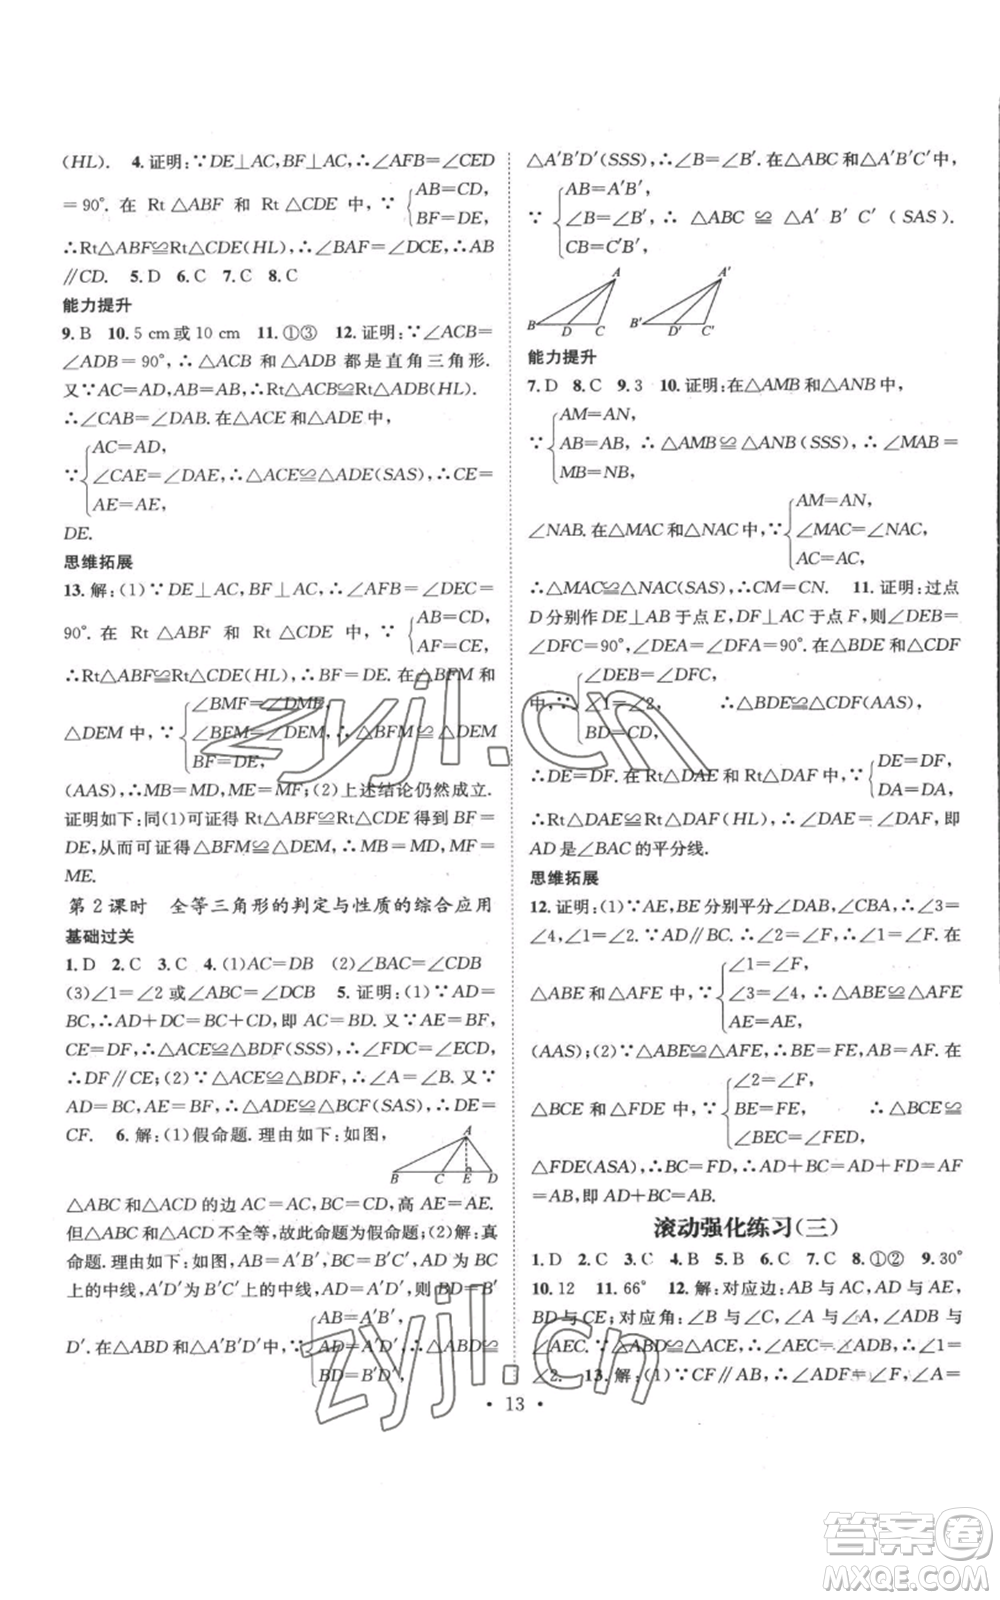 (HL). 4.证明:∵DE⊥AC,BF⊥AC,∴∠AFB=∠CED
=90°.在 Rt△ABF 和 Rt△CDE 中,∵{AB=CD,
BF=DE,
∴Rt△ABF≌Rt△CDE(HL),∴∠BAF=∠DCE,∴AB
∥CD. 5.D 6.C 7.C 8.C
能力提升
9.B 10.5 cm或10 cm 11.①③ 12.证明:∵∠ACB=
∠ADB=90°,∴△ACB 和△ADB 都是直角三角形.
又∵AC=AD,AB=AB,∴Rt△ACB≌Rt△ADB(HL).
∴∠CAB=∠DAB.在△ACE和△ADE中,
AC=AD,
∵{∠CAE=∠DAE,∴△ACE≌△ADE(SAS),∴CE=
AE=AE,
DE.
思维拓展
13.解:(1)∵DE⊥AC,BF⊥AC,∴∠AFB=∠DEC=
90°.在 Rt△ABF 和 Rt△CDE 中,∵{AB=CD,
AF=CE,
∴Rt△ABF≌Rt△CDE(HL),∴BF=DE.在△BFM和
∠BMF=∠DME,
△DEM中,∵{∠BFM=∠DEM,∴△BFM≌△DEM
BF=DE,
(AAS),∴MB=MD,ME=MF;(2)上述结论仍然成立.
证明如下:同(1)可得Rt△ABF≌Rt△CDE得到BF=
DE,从而可证得△BFM≌△DEM,∴MB=MD,MF=
ME.
第2课时 全等三角形的判定与性质的综合应用
基础过关
1.D 2.C 3.C 4.(1)AC=DB (2)∠BAC=∠CDB
(3)∠1=∠2或∠ABC=∠DCB 5.证明:(1)∵AD=
BC,∴AD+DC=BC+CD,即AC=BD.又∵AE=BF,
CE=DF,∴△ACE≌△BDF(SSS),∴∠FDC=∠ECD,
∴DF∥CE;(2)∵△ACE≌△BDF,∴∠A=∠B.又∵
AD=BC,AE=BF,∴△ADE≌△BCF(SAS),∴DE=
CF. 6.解:(1)假命题.理由如下:如图,
A
B C E D
△ABC和△ACD的边AC=AC,BC=CD,高AE=AE.
但△ABC和△ACD不全等,故此命题为假命题;(2)解:真
命题.理由如下:如图,AB=A′B′,BC=B′C′,AD为BC
上的中线,A′D′为B′C′上的中线,AD=A′D′,则BD=B′
AB=A′B′,
D′.在△ABD和△A′B′D′中,∵{AD=A′D′,∴△ABD≌
BD=B′D′,
△A′B′D′(SSS),∴∠B=∠B′.在△ABC和△A′B′C′中,
AB=A′B′,
∵{∠B=∠B′,∴△ABC≌△A′B′C′(SAS).
CB=C′B′,
A A′
B D C B′ D′ C′
能力提升
7.D 8.C 9.3 10.证明:在△AMB和△ANB中,
AM=AN,
∵{AB=AB,∴△AMB≌△ANB(SSS),∴∠MAB=
MB=NB,
AM=AN,
∠NAB.在△MAC和△NAC中,∵{∠MAC=∠NAC,
AC=AC,
∴△MAC≌△NAC(SAS),∴CM=CN. 11.证明:过点
D分别作DE⊥AB于点E,DF⊥AC于点F,则∠DEB=
∠DFC=90°,∠DEA=∠DFA=90°.在△BDE和△CDF
∠DEB=∠DFC,
中,∵{∠1=∠2, ∴△BDE≌△CDF(AAS),
BD=CD,
∴DE=DF.在Rt△DAE和Rt△DAF中,∵{DE=DF,
DA=DA,
∴Rt△DAE≌Rt△DAF(HL),∴∠DAE=∠DAF,即
AD是∠BAC的平分线.
思维拓展
12.证明:(1)∵AE,BE分别平分∠DAB,∠CBA,∴∠3=
∠4,∠1=∠2.∵AD∥BC.∴∠2=∠F,∴∠1=∠F.在
∠1=∠F,
△ABE和△AFE中,∵{∠3=∠4,∴△ABE≌△AFE
AE=AE,
(AAS);(2)∵△ABE≌△AFE,∴BE=FE,AF=AB.在
∠2=∠F,
△BCE和△FDE中,∵{BE=FE, ∴△BCE≌
∠BEC=∠FED,
△FDE(ASA),∴BC=FD,∴AD+BC=AD+FD=AF
=AB,即AD+BC=AB.
滚动强化练习(三)
1.D 2.C 3.C 4.B 5.B 6.C 7.C 8.①② 9.30°
10.12 11.66° 12.解:对应边:AB与AC,AD与AE,
BD与CE;对应角:∠B与∠C,∠BAD与∠CAE,∠ADB与
∠AEC.∵△ABD≌△ACE,∴∠AEC=∠ADB,∴∠1=
∠2. 13.解:(1)∵CF∥AB,∴∠B=∠FCD,∠A=
·13·
zyjl.cn
zyjl.cn
答案圈
MXQE.COM